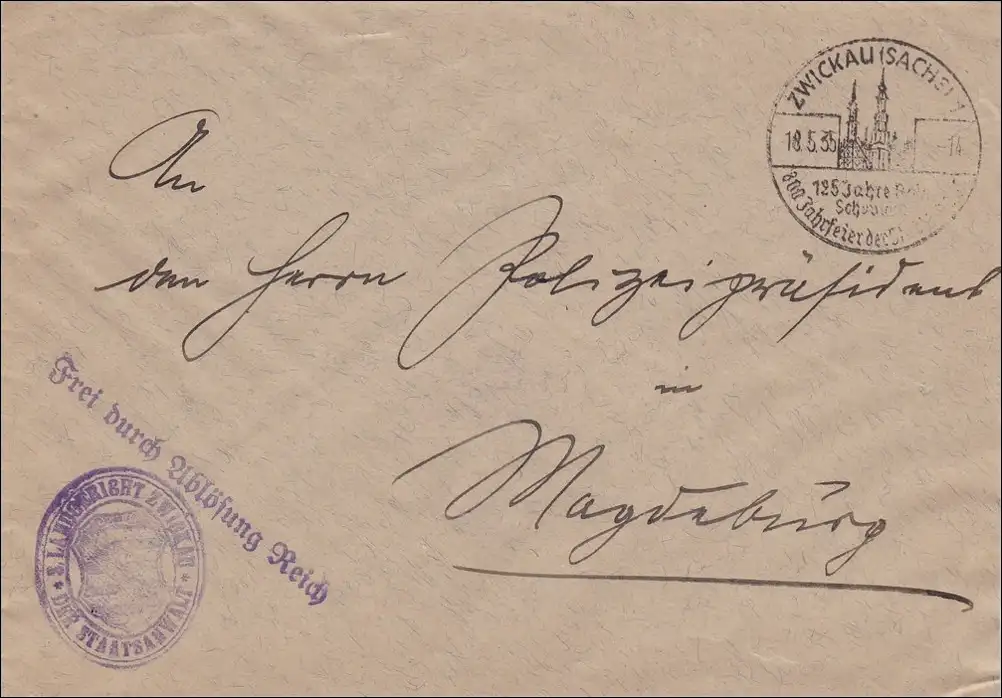 ZWICKAU (SACHS) 1
18.5.35 -14
125 Jahre
800 Jahrfeier der
An
den Herrn Polizeipräsident
in
Magdeburg
Frei durch Ablösung Reich
S. LANDGERICHT ZWICKAU
* DER STAATSANWALT *